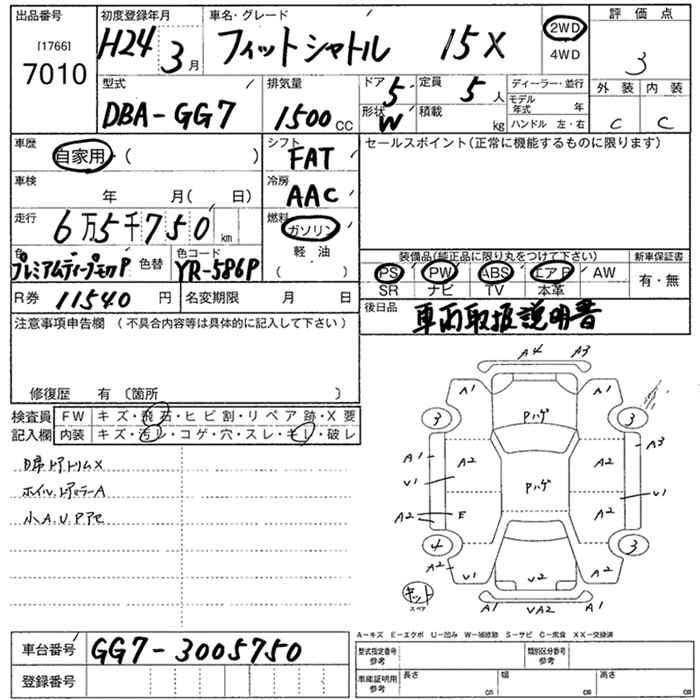 出品番号
[1766]
7010
初度登録年月
H24 3月
車名・グレード
フィットシャトル 15X
2WD
4WD
評価点
3
外装 内装
C C
型式
DBA-GG7
排気量
1500cc
ドア 5
形状 W
定員 5人
積載 kg
ディーラー・並行
モデル年式 年
ハンドル 左・右
車歴
自家用・( )
シフト
FAT
セールスポイント(正常に機能するものに限ります)
車検
年 月( 日)
冷房
AAC
走行
6万5千750km
燃料
ガソリン
軽油
( )
色
プレミアムディープモカP
色替
色コード
YR-586P
装備品(純正品に限り丸をつけて下さい)
新車保証書
PS PW ABS エアB AW
SR ナビ TV 本革
有・無
R券 11540円
名変期限 月 日
後日品
車両取扱説明書
注意事項申告欄 (不具合内容等は具体的に記入して下さい)
修復歴 有(箇所 )
検査員記入欄
FW キズ・飛石・ヒビ割・リペア跡・X要
内装 キズ・汚レ・コゲ・穴・スレ・キレ・破レ
内ドアトリムX
小A.U.Pアセ
A4 A3
A1 A1
3 3
Pハゲ
A1 A2 A2 A3
U1 Pハゲ U1
A2 E A2
4 3
A2 U1 U2 A2
キット
スペア
A1 UA2 A1
A-キズ E-エクボ U-凹み W-補修跡 S-サビ C-腐食 XX-交換済
車台番号 GG7-3005750
登録番号
型式指定番号 参考
類別区分番号 参考
車庫証明用 参考
長さ cm 幅 cm 高さ cm